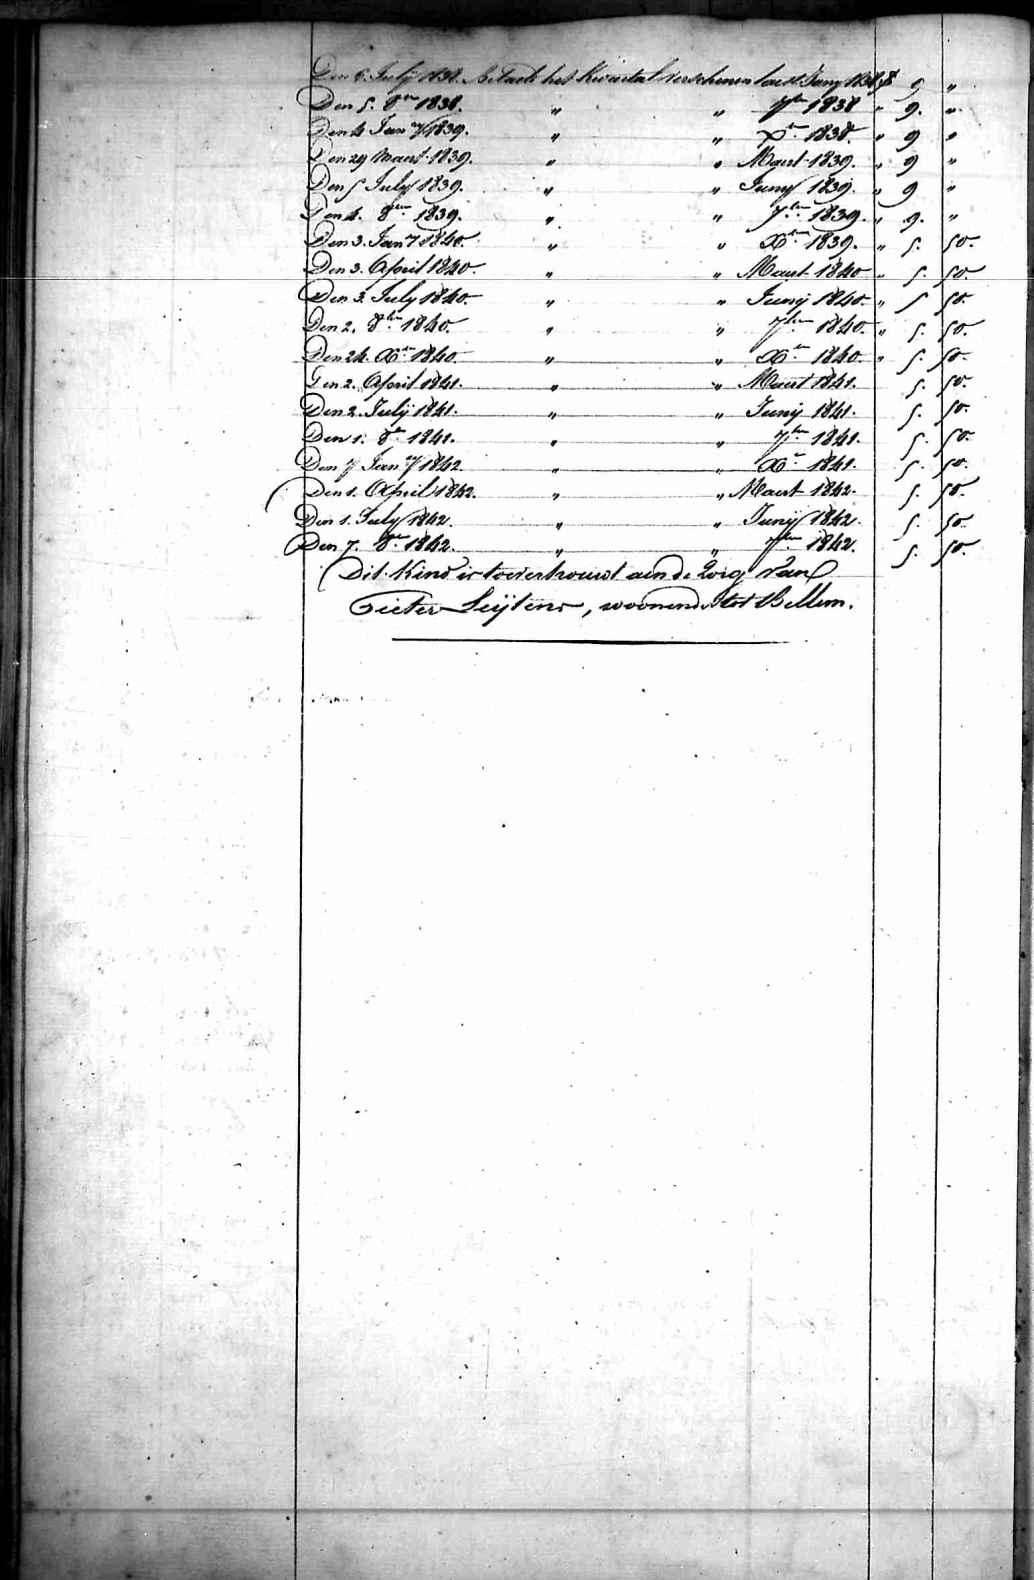 Den 6. July 1838. betaelt het Kwartal verschenen laest Juny 1838 f 9 "
Den 5. 8ber 1838. " " 7ber 1838 " 9. "
Den 4 Jan y 1839. " " Xber 1838. " 9 "
Den 29 Maert 1839. " " Maert 1839. " 9 "
Den 5 July 1839. " " Juny 1839. " 9 "
Den 4. 8ber 1839. " " 7ber 1839. " 9. "
Den 3. Jany 1840. " " Xber 1839. " 5. 50.
Den 3. April 1840. " " Maert 1840 " 5. 50.
Den 3. July 1840. " " Junij 1840. " 5 50.
Den 2. 8ber 1840. " " 7ber 1840. " 5. 50.
Den 24. Xber 1840. " " Xber 1840 " 5. 50.
Den 2. April 1841. " " Maert 1841. 5. 50.
Den 2. Julij 1841. " " Junij 1841. 5. 50.
Den 1. 8ber 1841. " " 7ber 1841. 5. 50.
Den 7 Jan y 1842. " " Xber 1841. 5. 50.
Den 1. April 1842. " " Maert 1842. 5. 50.
Den 1. July 1842. " " Junij 1842. 5. 50
Den 7. 8ber 1842. " " 7ber 1842. 5. 50.
Dit Kind is toevertrouwt aen de Zorg van
Pieter Leijtens, woonende tot Bellem.